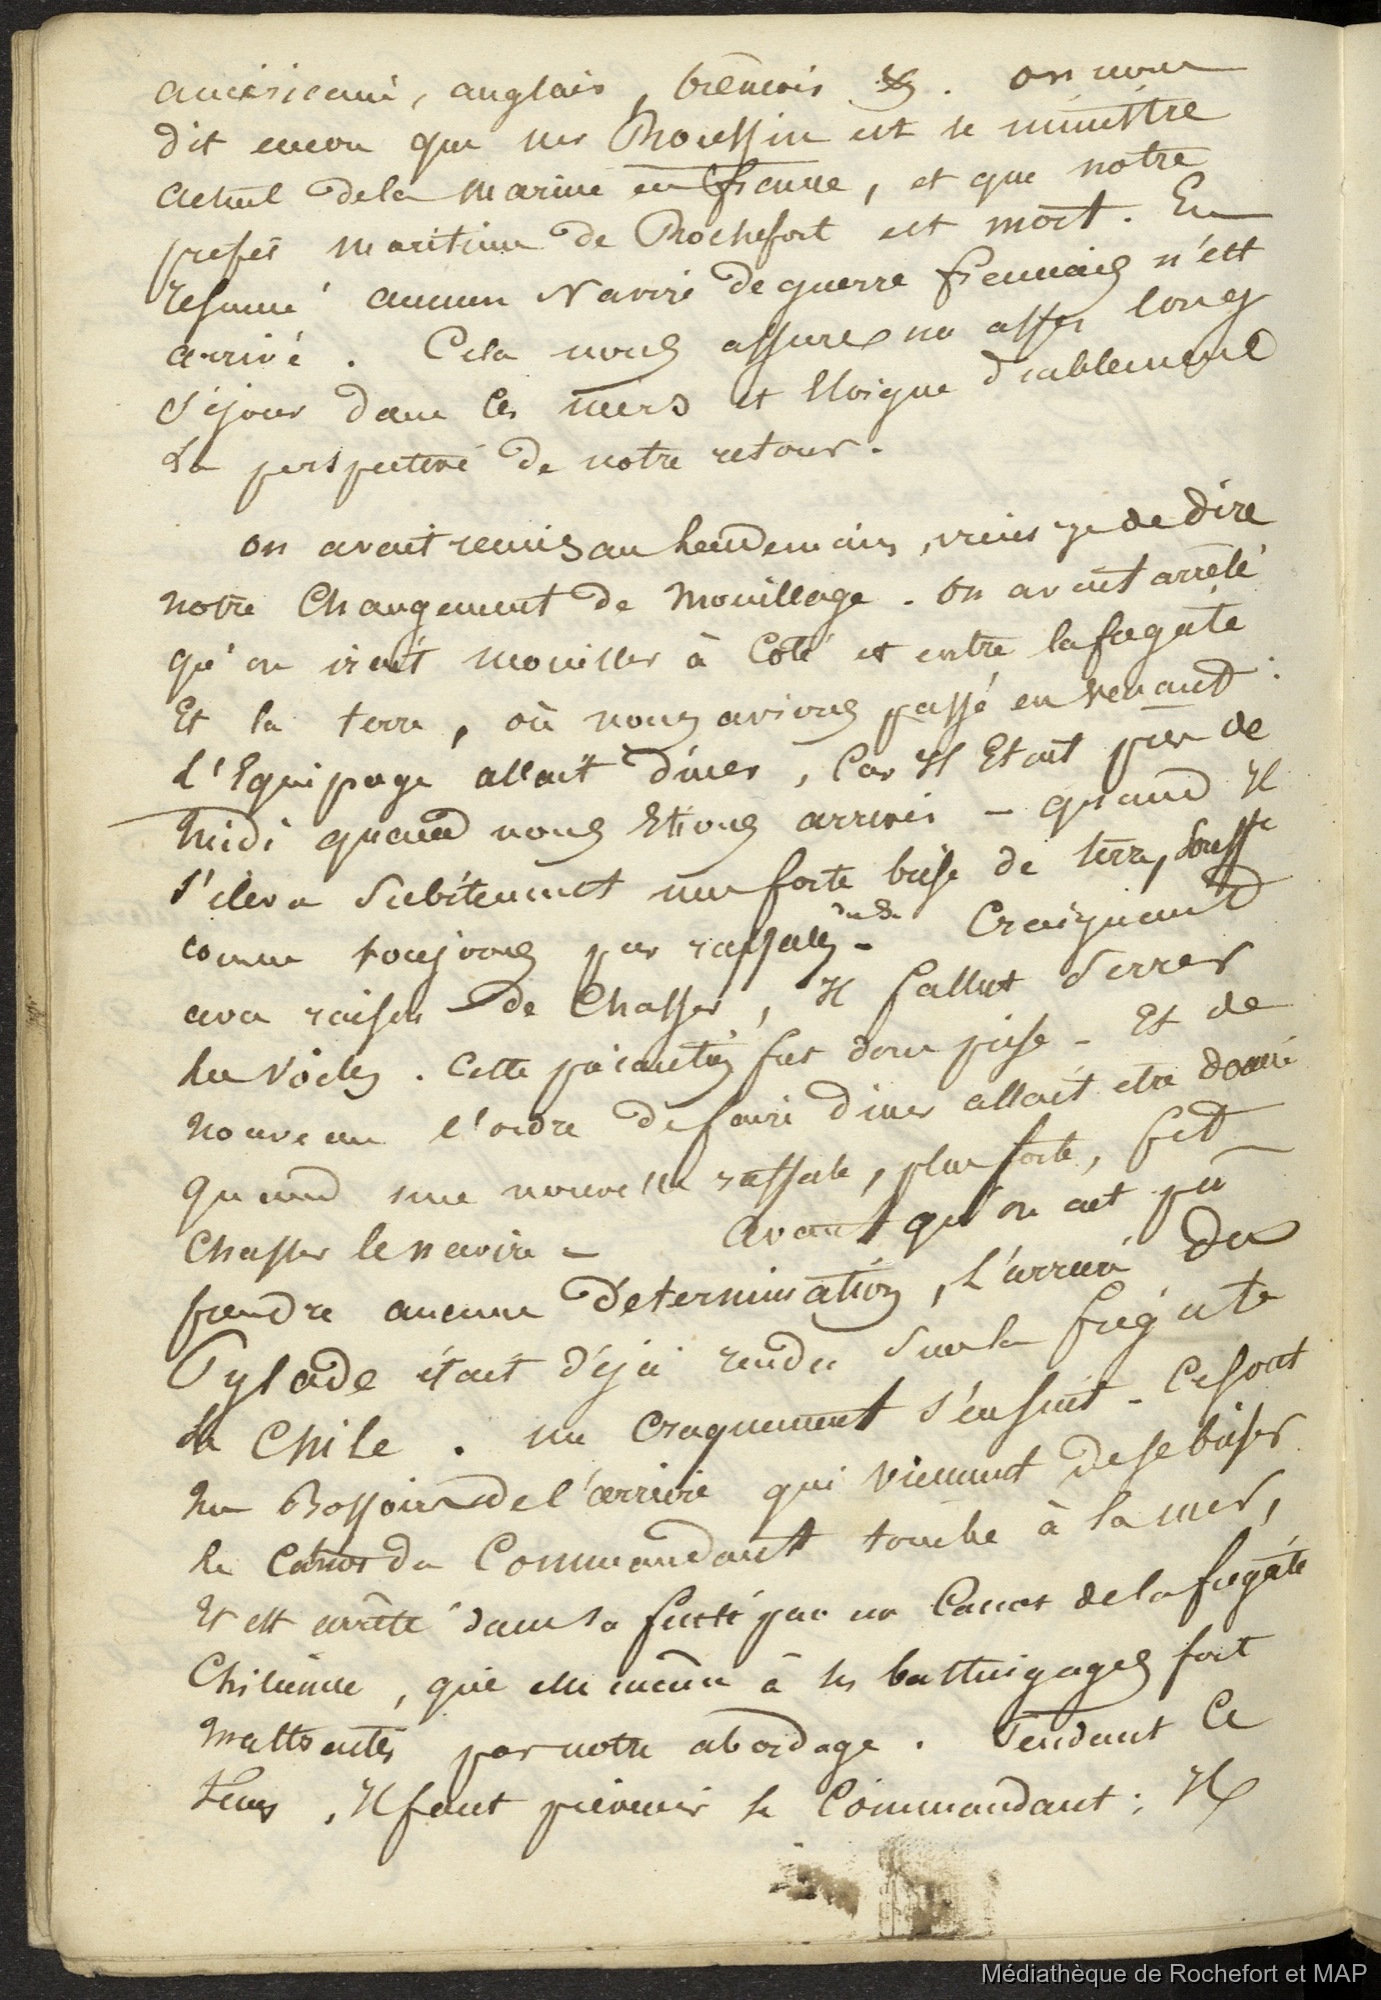 américains, anglais, brémois &. on nous
dit encore que Mr Roussin est le ministre
actuel de la marine en france, et que notre
prefet maritime de Rochefort est mort. En
resumé aucun Navire de guerre français n'est
arrivé. Cela nous assure un assez long
séjour dans les mers et éloigne diablement
la perspective de notre retour.
on avait remis au lendemain, viens-je de dire
notre changement de mouillage. On avait arrêlé
qu'on irait mouiller à Coté et entre la fregate
Et la terre, où nous avions passé en venant.
L'Equipage allait diner, Car Il Etait près de
Midi quand nous Etions arrivés - quand Il
s'éleva subitement une forte brise de terre,
comme toujours par raffales - Craignant
avec raison de Chasser, Il fallut serrer
les voiles. Cette précaution fut donc prise - Et de
nouveau l'ordre de faire diner allait etre donné
quand une nouvelle raffale, plus forte, fit
Chasser le navire - Avant qu'on ait pû
prendre aucune détermination, l'arriere du
Pylade était déja rendu sur la fregate
la Chile. un craquement s'ensuit - Ce sont
les Bossoirs de l'arriere qui viennent de se briser
le Canot du Commandant touche à la mer,
Et est arrêté dans sa fuite par un Canot de la fregate
Chilienne, que elle même à ses bastingages fort
maltraités par notre abordage. Pendant Ce
tems, Il faut prévenir le Commandant; Il
Médiathèque de Rochefort et MAP